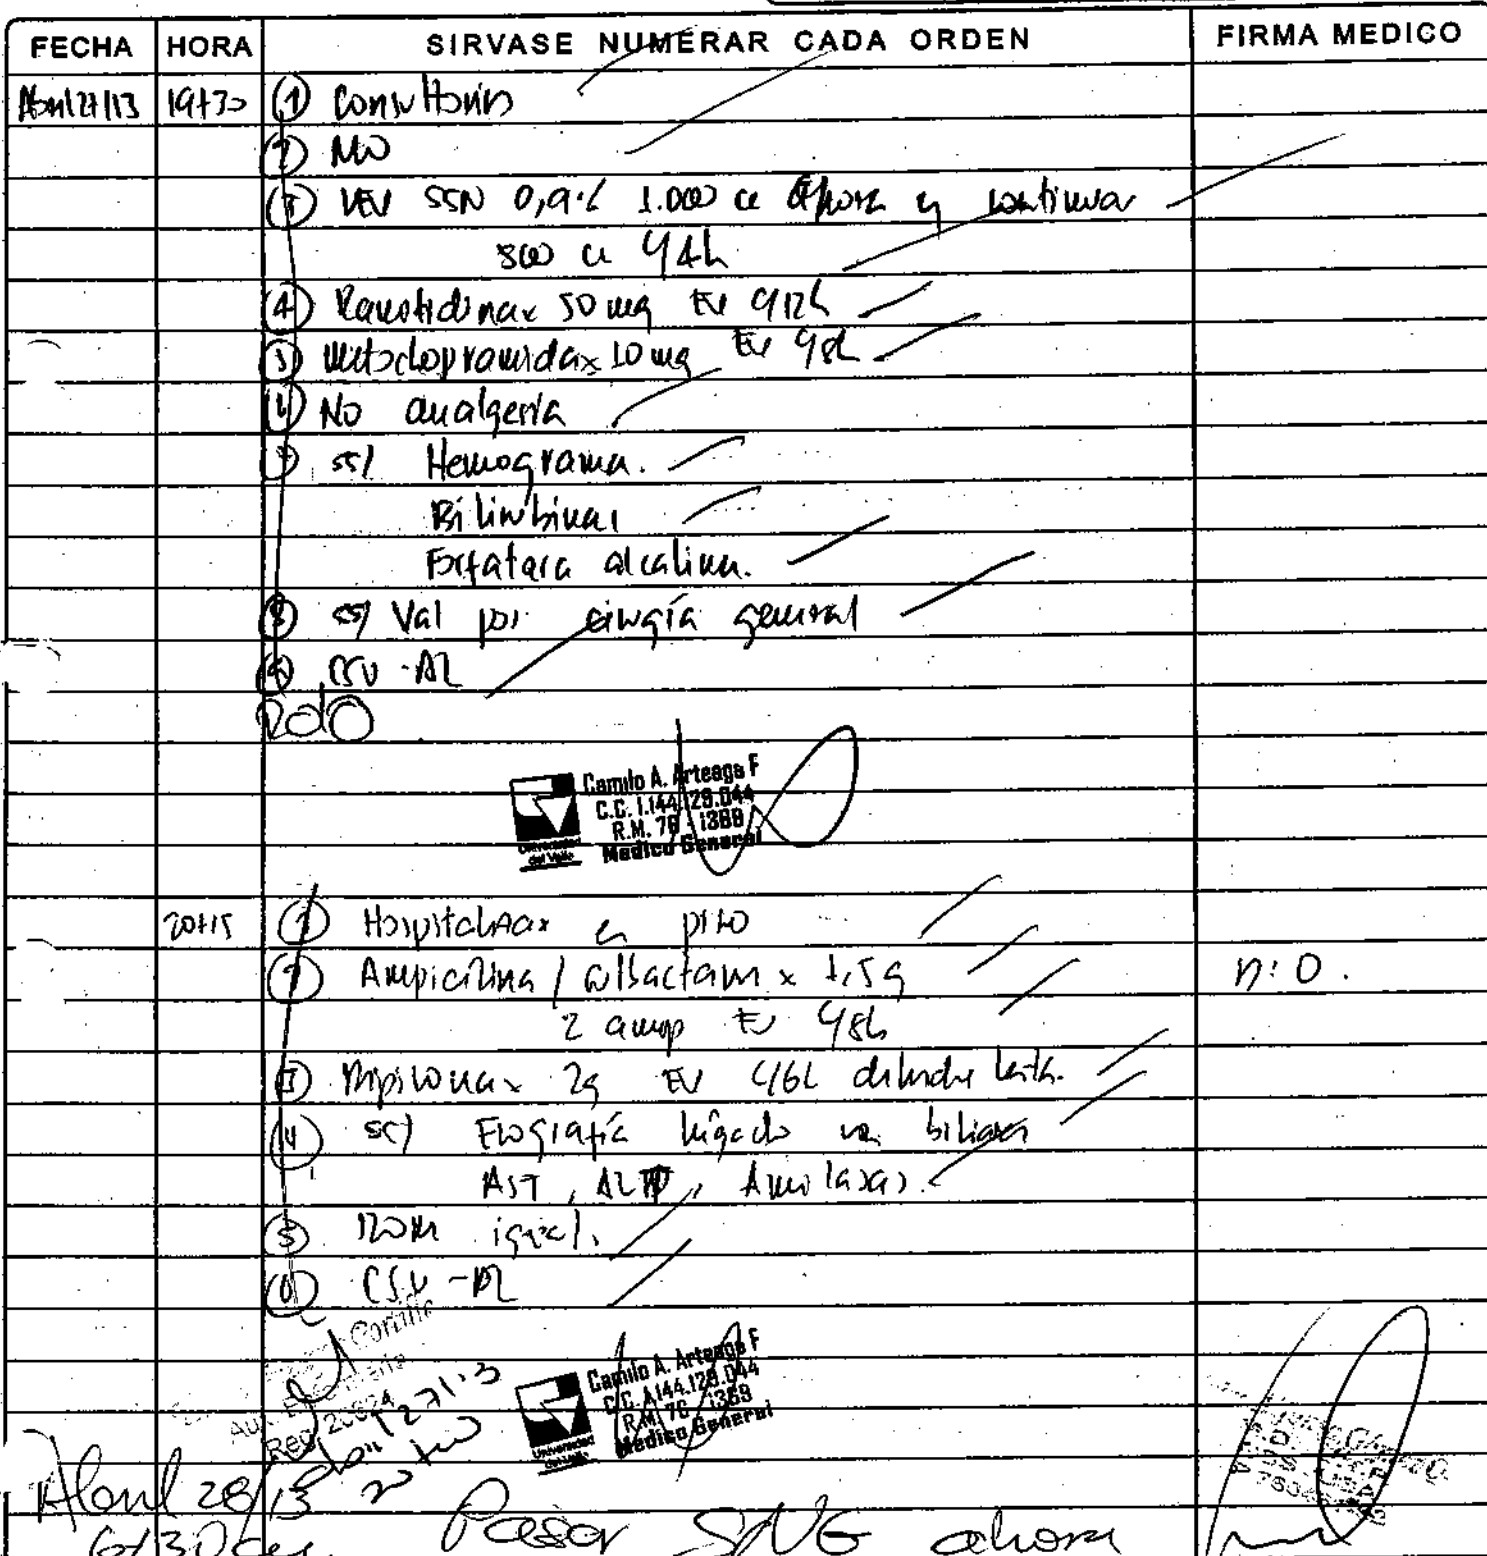 FECHA HORA SIRVASE NUMERAR CADA ORDEN FIRMA MEDICO
Abril 27/13 19+30 (1) Consultorios
(2) NVO
(3) LEV SSN 0,9% 1.000 cc Ahora y continuar
500 cc c/4h
(4) Ranitidina x 50 mg EV c/12h
(5) Metoclopramida x 10 mg EV c/8h
(6) No analgesia
(7) ss/ Hemograma.
Bilirrubinas
Fosfatasa alcalina.
(8) ss/ Val por cirugía general
(9) CSV - AC
Camilo A. Arteaga F
C.C. 1.144.129.044
R.M. 76 - 1369
Medico General
Universidad
del Valle
20+15 (1) Hospitalizar en piso
(2) Ampicilina / sulbactam x 1,5g n: O.
2 amp EV c/8h
(3) Dipirona x 2g EV c/6h lenta.
(4) ss/ Ecografía hígado vías biliares
AST, ALT, Amilasas.
(5) ROM igual.
(6) CSV - AC
Camilo A. Arteaga F
C.C. 1.144.129.044
R.M. 76 - 1369
Medico General
Universidad
del Valle
Reg. 20624
Abril 27/13
Abril 28/13
6+30 Pasar SNG ahora